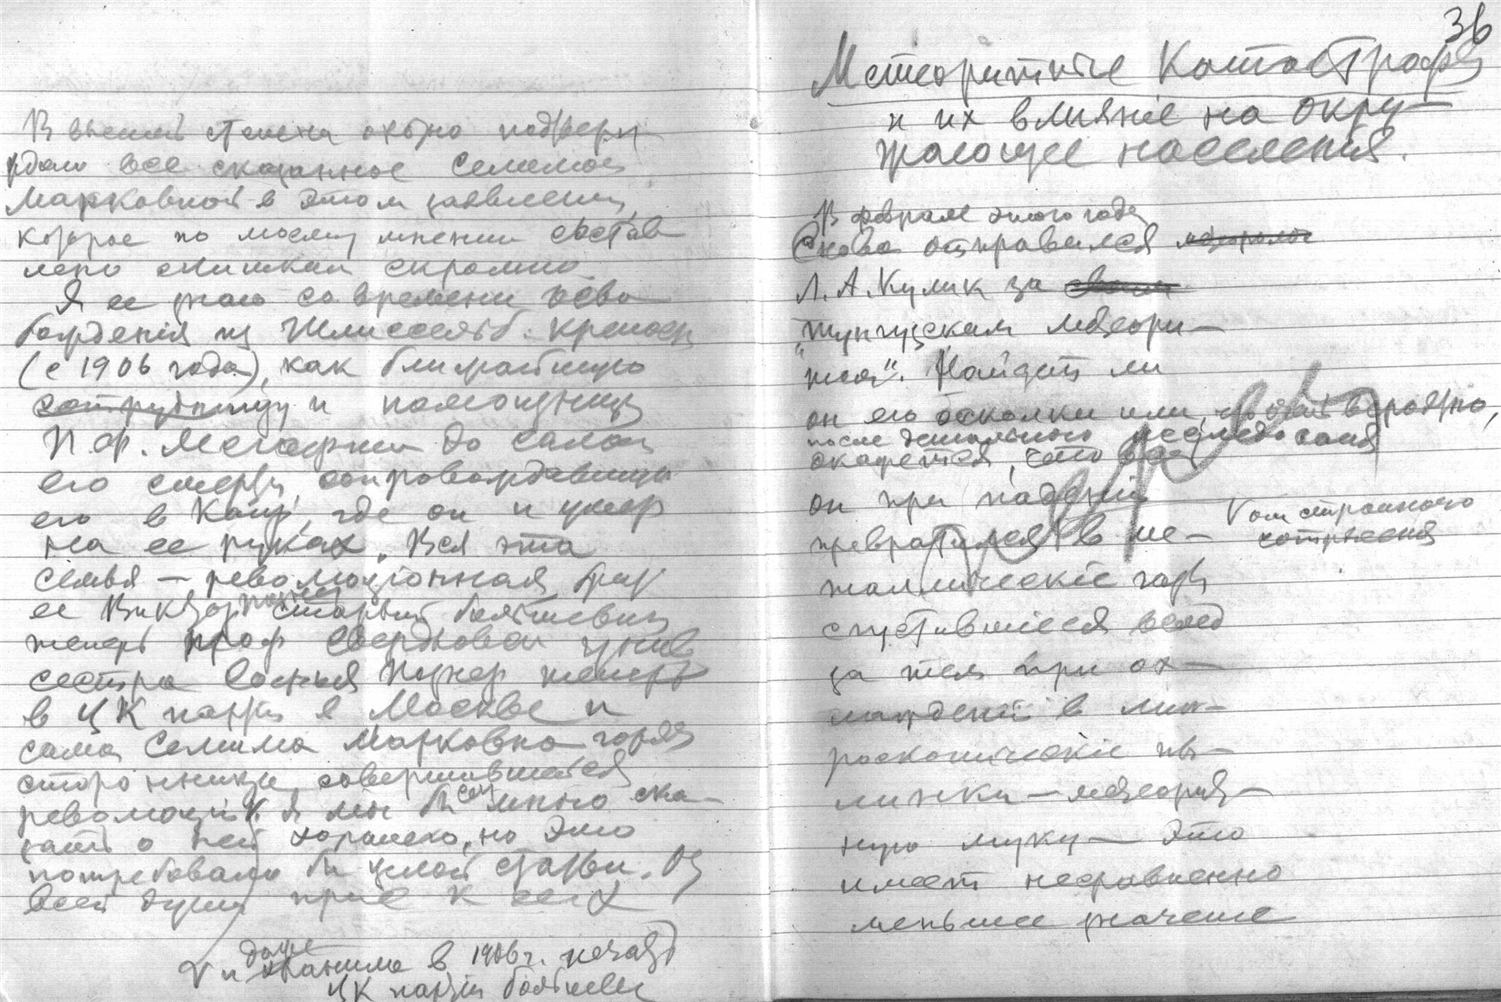 В высшей степени охотно подтверж
даю все сказанное Селимой
Марковной в этом заявлении,
которое по моему мнению состав
лено слишком скромно.
Я ее знаю со времени осво
бождения из Шлиссельб. крепости
(с 1906 года), как ближайшую
сотрудницу и помощницу
до самой
его смерти, сопровождавшую
его в где он и умер
на ее руках. Вся эта
семья — революционная брат
ее Виктор старый большевик
теперь проф Свердловск унив
сестра Познер теперь
в ЦК партии в Москве и
сама Селима Марковна горяч
сторонница совершившейся
революции. Я мог бы много ска-
зать о ней хорошего, но это
потребовало бы целой статьи. От
всей души
и даже хранила в 1906 г. печать
ЦК партии большеви
36
Метеоритные Катастрофы
и их влияніе на окру-
жающее населенія.
В феврале этого года
Снова отправился
Л. А. Кулик за
„Тунгусским метеори-
том". Найдет ли
он его осколки или, что более вероятно,
после детального исследования
окажется, что весь
он при паденіи
превратился в ме-
V от страшного
сотрясения
таллическіе газы
сгустившіеся вслед
за тем при ох-
лаждении в мик-
роскопическіе пы-
линки — метеорит-
ную муку — это
имеет несравненно
меньшее значение